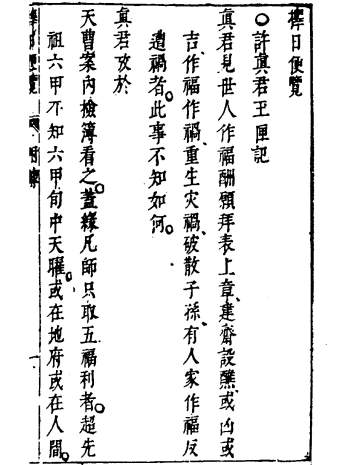 擇日便覽
○許真君玉匣記
真君見世人作福酬願拜表上章、建齋設醮、或凶或
吉、作福作禍、重生灾禍、破散子孫、有人家作福反
遭禍者。此事不知如何。
真君故於
天曹案內檢簿看之。蓋緣凡師只取五福利者。超先
祖六甲不知六甲旬中天曜。或在地府或在人間。
擇日便覽
一